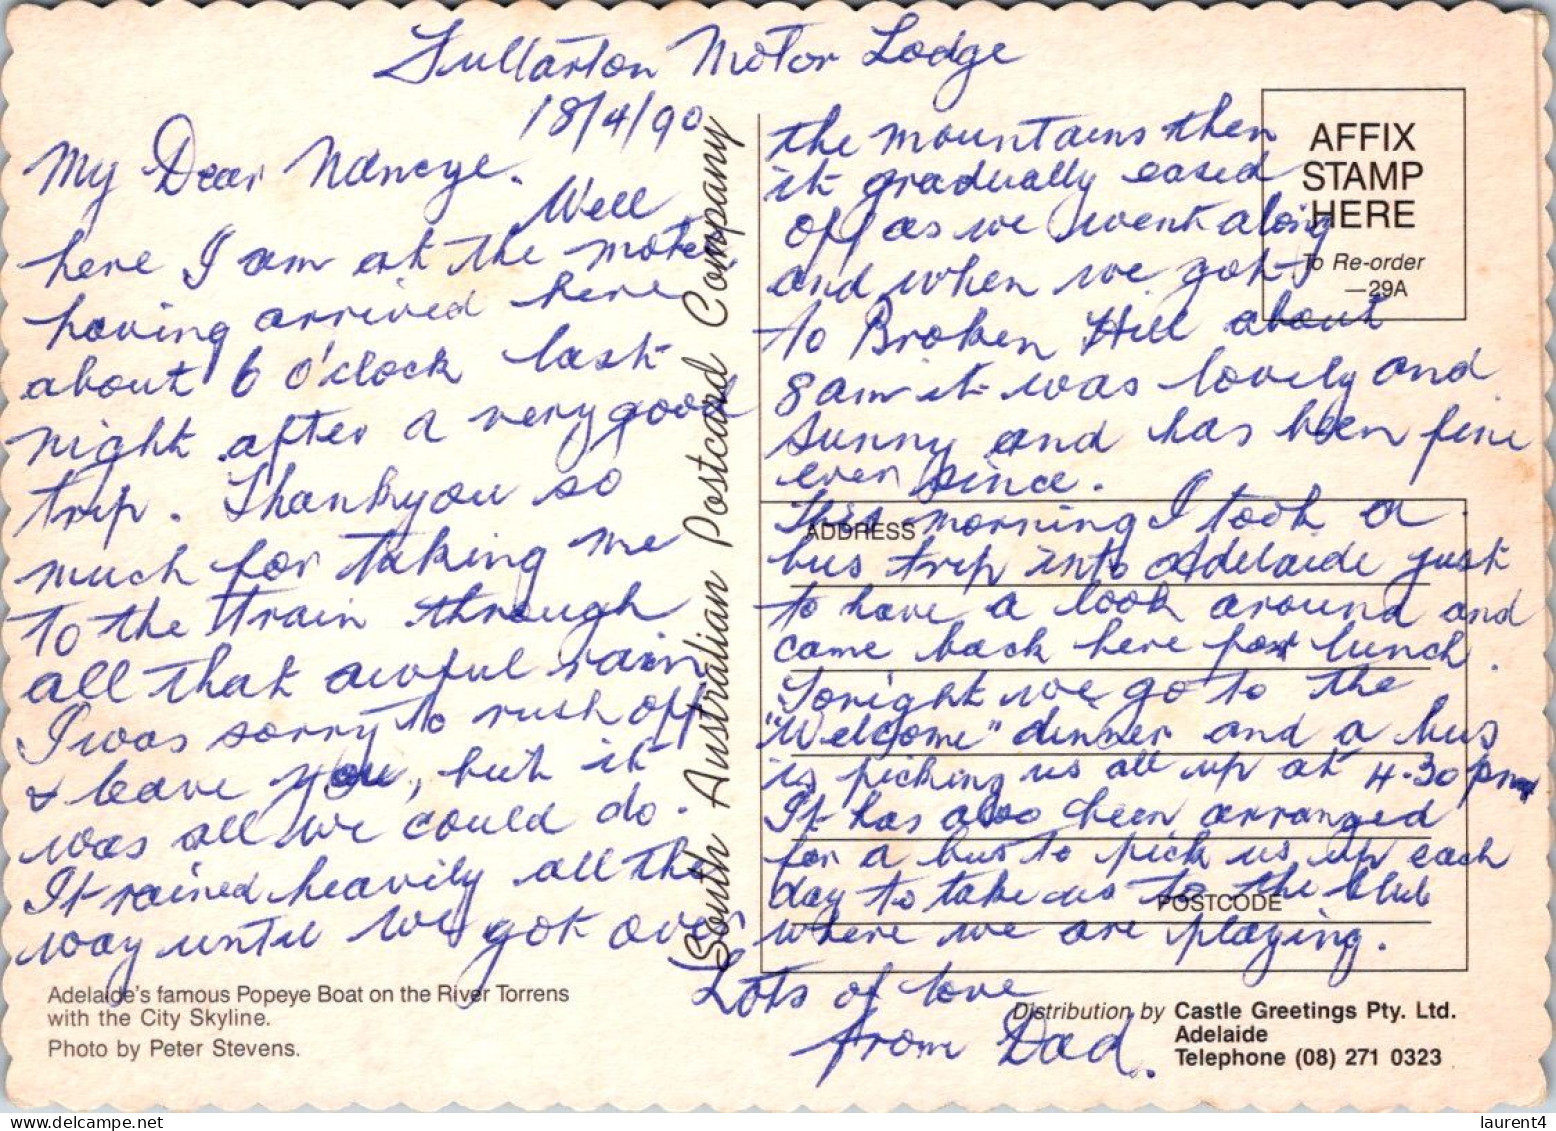 Fullarton Motor Lodge
18/4/90
My Dear Nancye.
Well
here I am at the motel
having arrived here
about 6 o'clock last
night after a very good
trip. Thankyou so
much for taking me
to the train through
all that awful rain
I was sorry to rush off
& leave you, but it
was all we could do.
It rained heavily all the
way until we got over
the mountains then
it gradually eased
off as we went along
and when we got
to Broken Hill about
8 am it was lovely and
sunny and has been fine
ever since.
This morning I took a
bus trip into Adelaide just
to have a look around and
came back here for lunch.
Tonight we go to the
"Welcome" dinner and a bus
is picking us all up at 4.30 pm
It has also been arranged
for a bus to pick us up each
day to take us to the club
where we are playing.
Lots of love
from Dad.
South Australian Postcard Company
AFFIX
STAMP
HERE
To Re-order
—29A
ADDRESS
POSTCODE
Adelaide's famous Popeye Boat on the River Torrens
with the City Skyline.
Photo by Peter Stevens.
Distribution by Castle Greetings Pty. Ltd.
Adelaide
Telephone (08) 271 0323
delcampe.net
laurent4